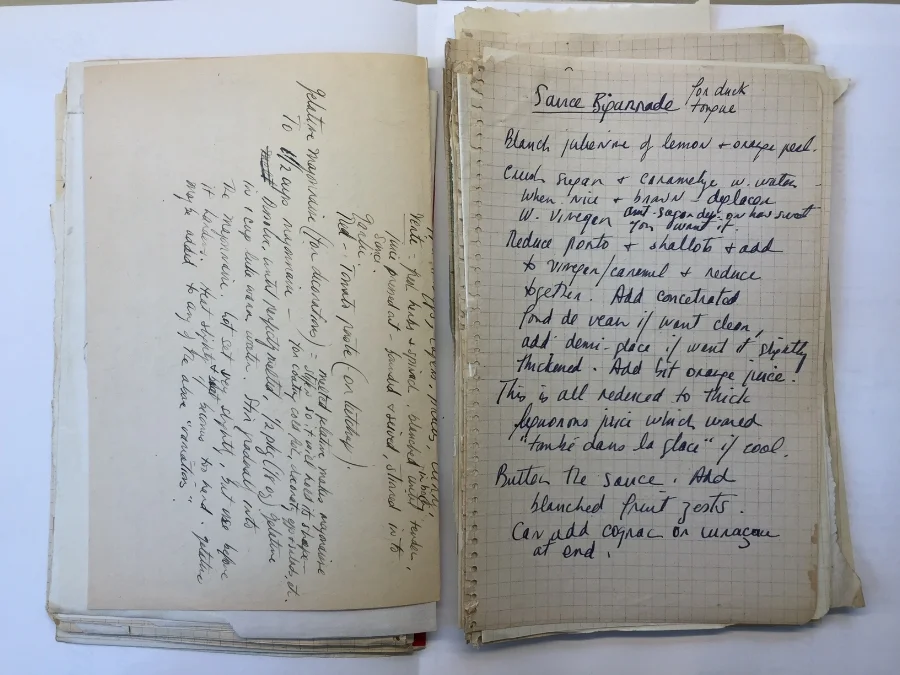 Verte - fresh herbs + spinach, blanched until tender,
in batter
juice pressed out - pounded + sieved, stirred into
Sauce.
Garlic.
Red - Tomato paste (or ketchup).
Gelatine Mayonnaise (for decorations) = melted gelatine makes mayonnaise
so it will hold its shape
To 1/2 cups mayonnaise - for coating cold fish, decorating,
dissolve until perfectly melted, 1/2 pkg gelatine
in 1 cup luke warm water. Stir gradually into
the mayonnaise. Let set very slightly, but use before
it hardens. Heat slightly if becomes too hard. Gelatine
may be added to any of the above "variations".
Sauce Bigarrade for duck
tongue
Blanch julienne of lemon + orange peel.
Crush sugar + caramelize w. water
when nice + brown deglacer
w. vinegar amt. sugar dep. on how sweet
you want it.
Reduce porto + shallots + add
to vinegar/caramel + reduce
together. Add concetrated
fond de veau if want clear,
add demi-glace if want it slightly
thickened. Add bit orange juice.
This is all reduced to thick
juice which
"tombé dans la glace" if cool.
Butter the sauce. Add
blanched fruit zests.
Can add cognac or curaçau
at end.